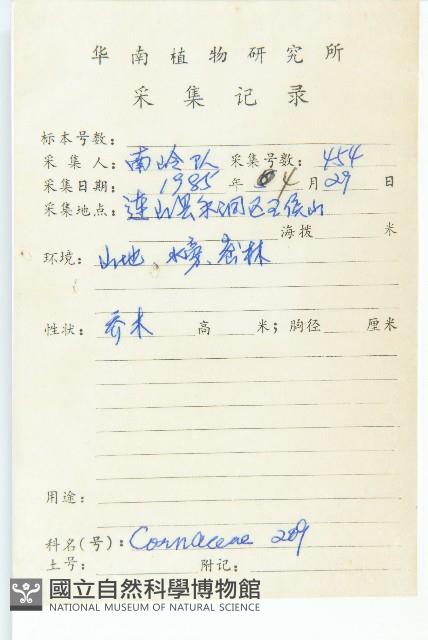 华南植物研究所
采集记录
标本号数:
采集人: 南岭队 采集号数: 454
采集日期: 1985 年 4 月 29 日
采集地点: 连山县禾洞区王侯山
海拨 米
环境: 山地、水旁、密林
性状: 乔木 高 米; 胸径 厘米
用途:
科名(号): Cornaceae 209
土号: 附记:
國立自然科學博物館
NATIONAL MUSEUM OF NATURAL SCIENCE